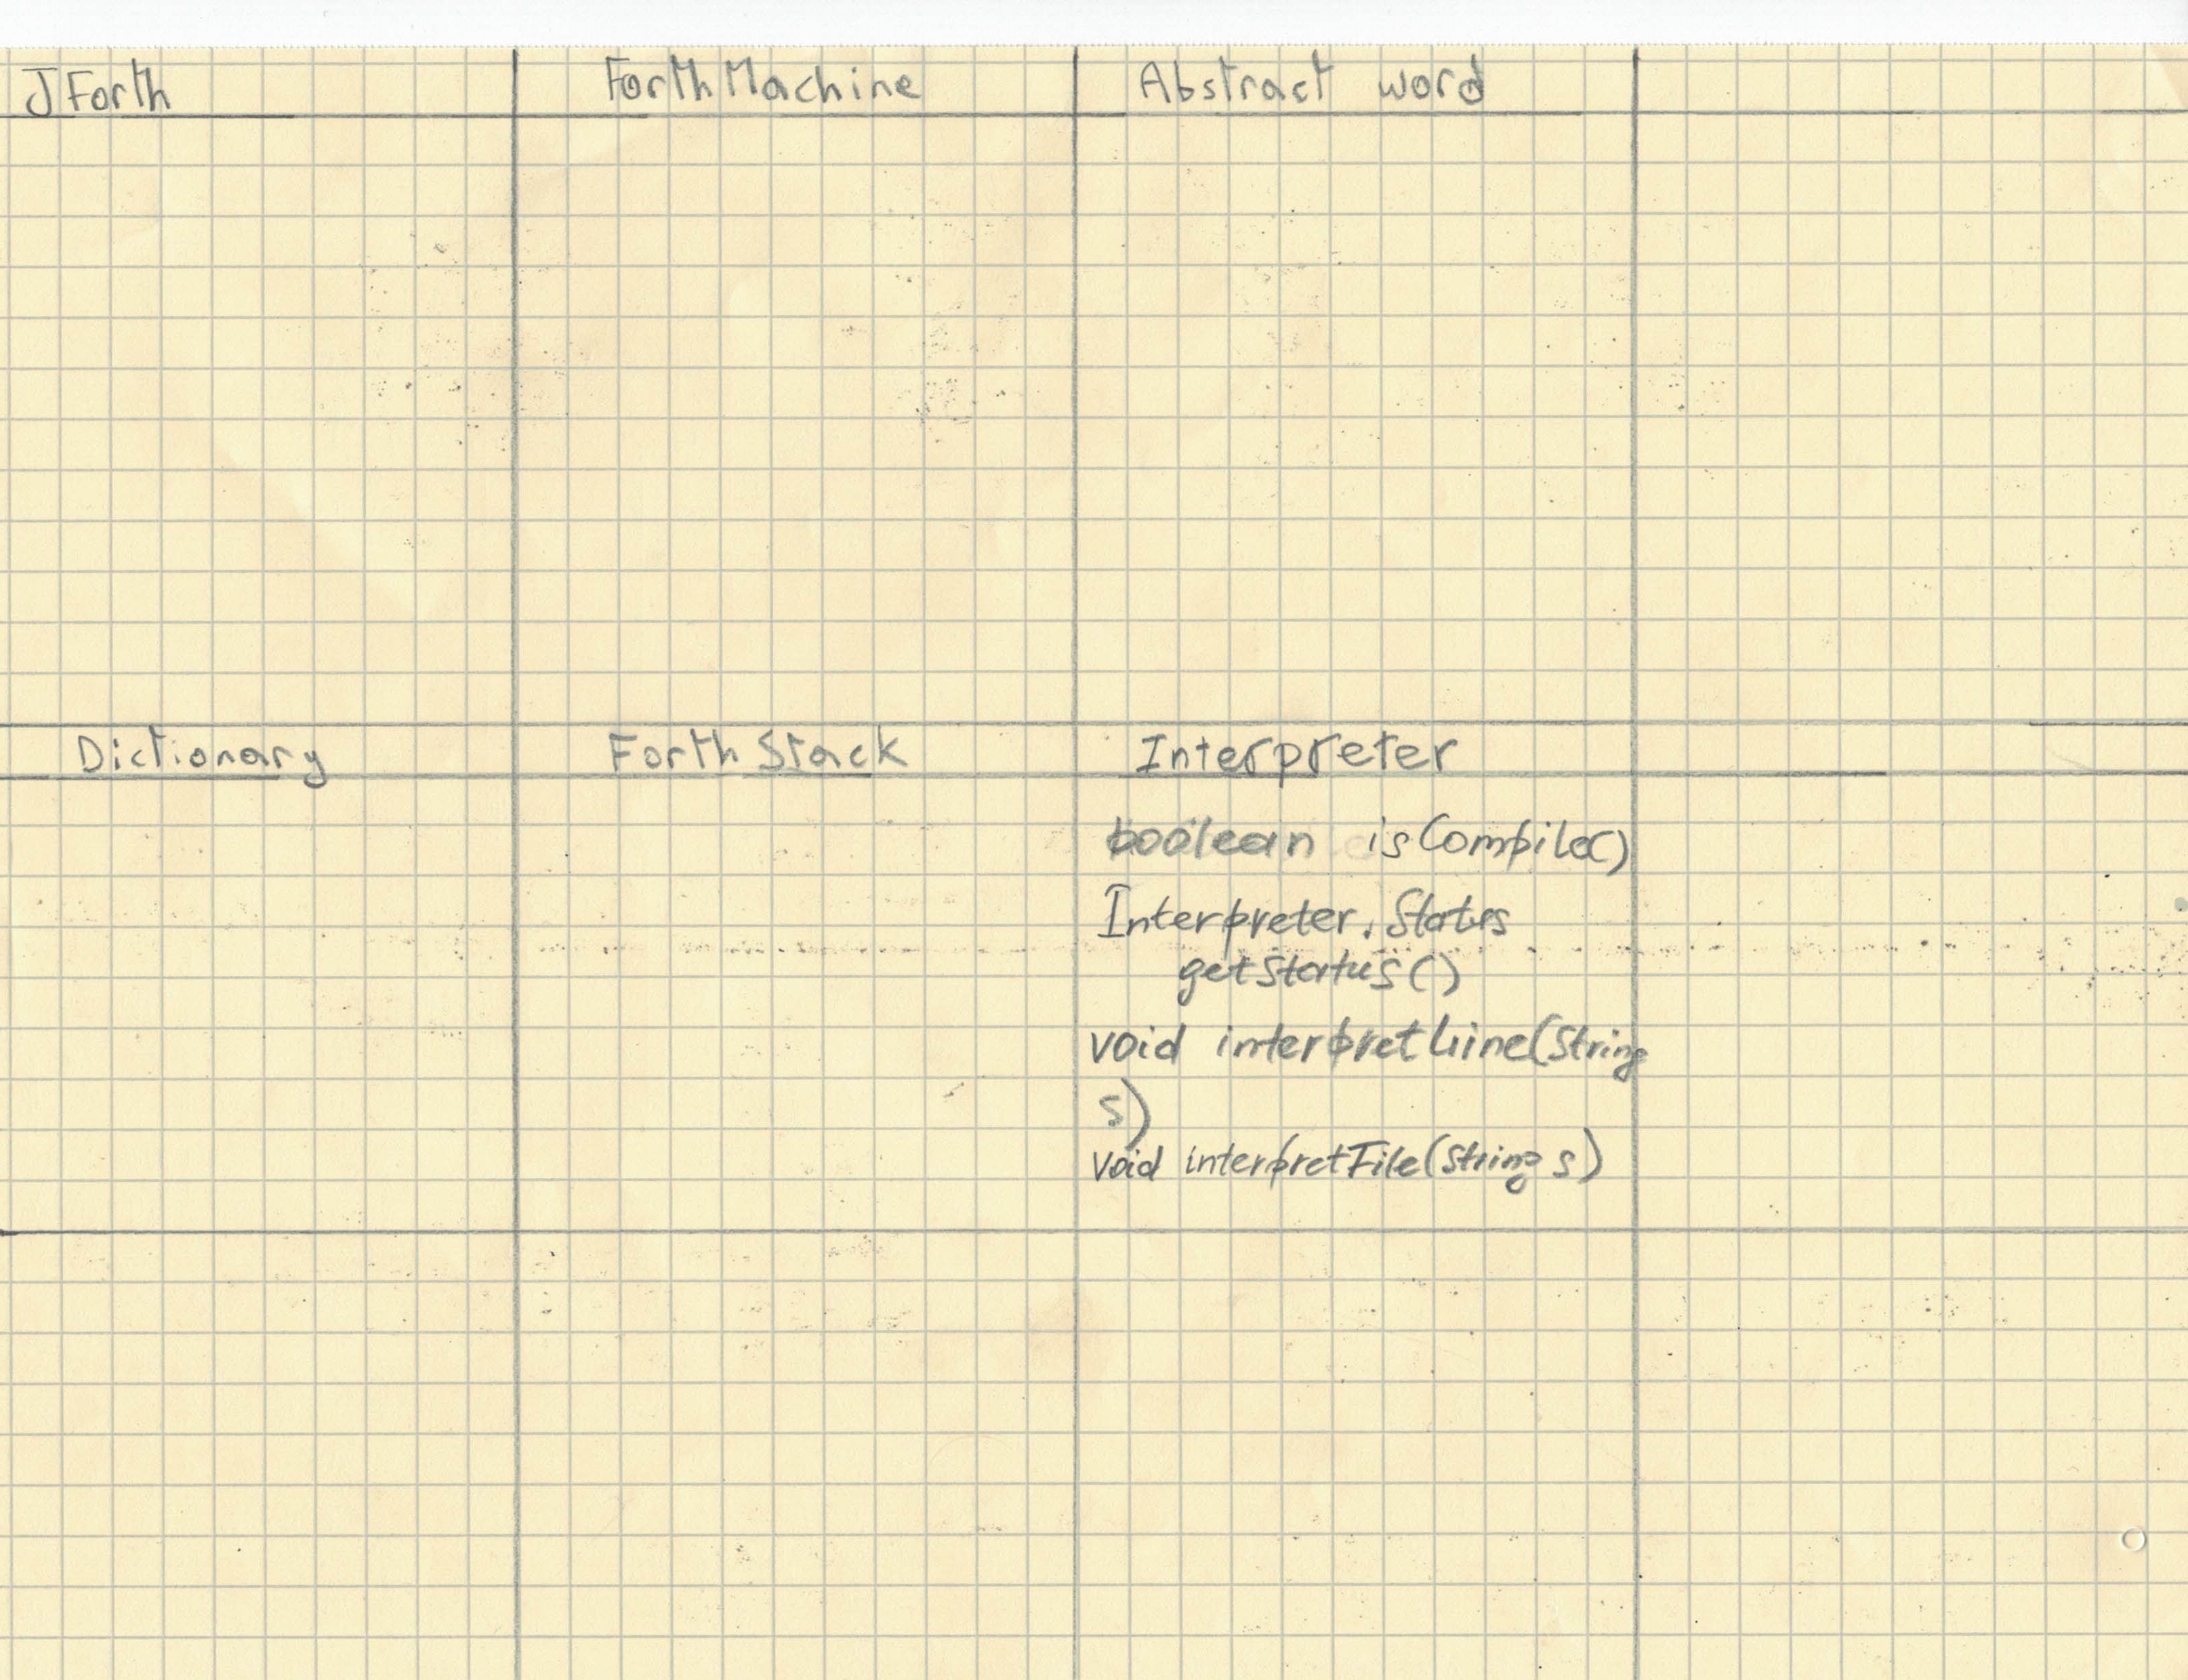 JForth
ForthMachine
Abstract word
Dictionary
Forth Stack
Interpreter
boolean isCompile()
Interpreter.Status
getStatus()
void interpretLine(String
s)
void interpretFile(String s)